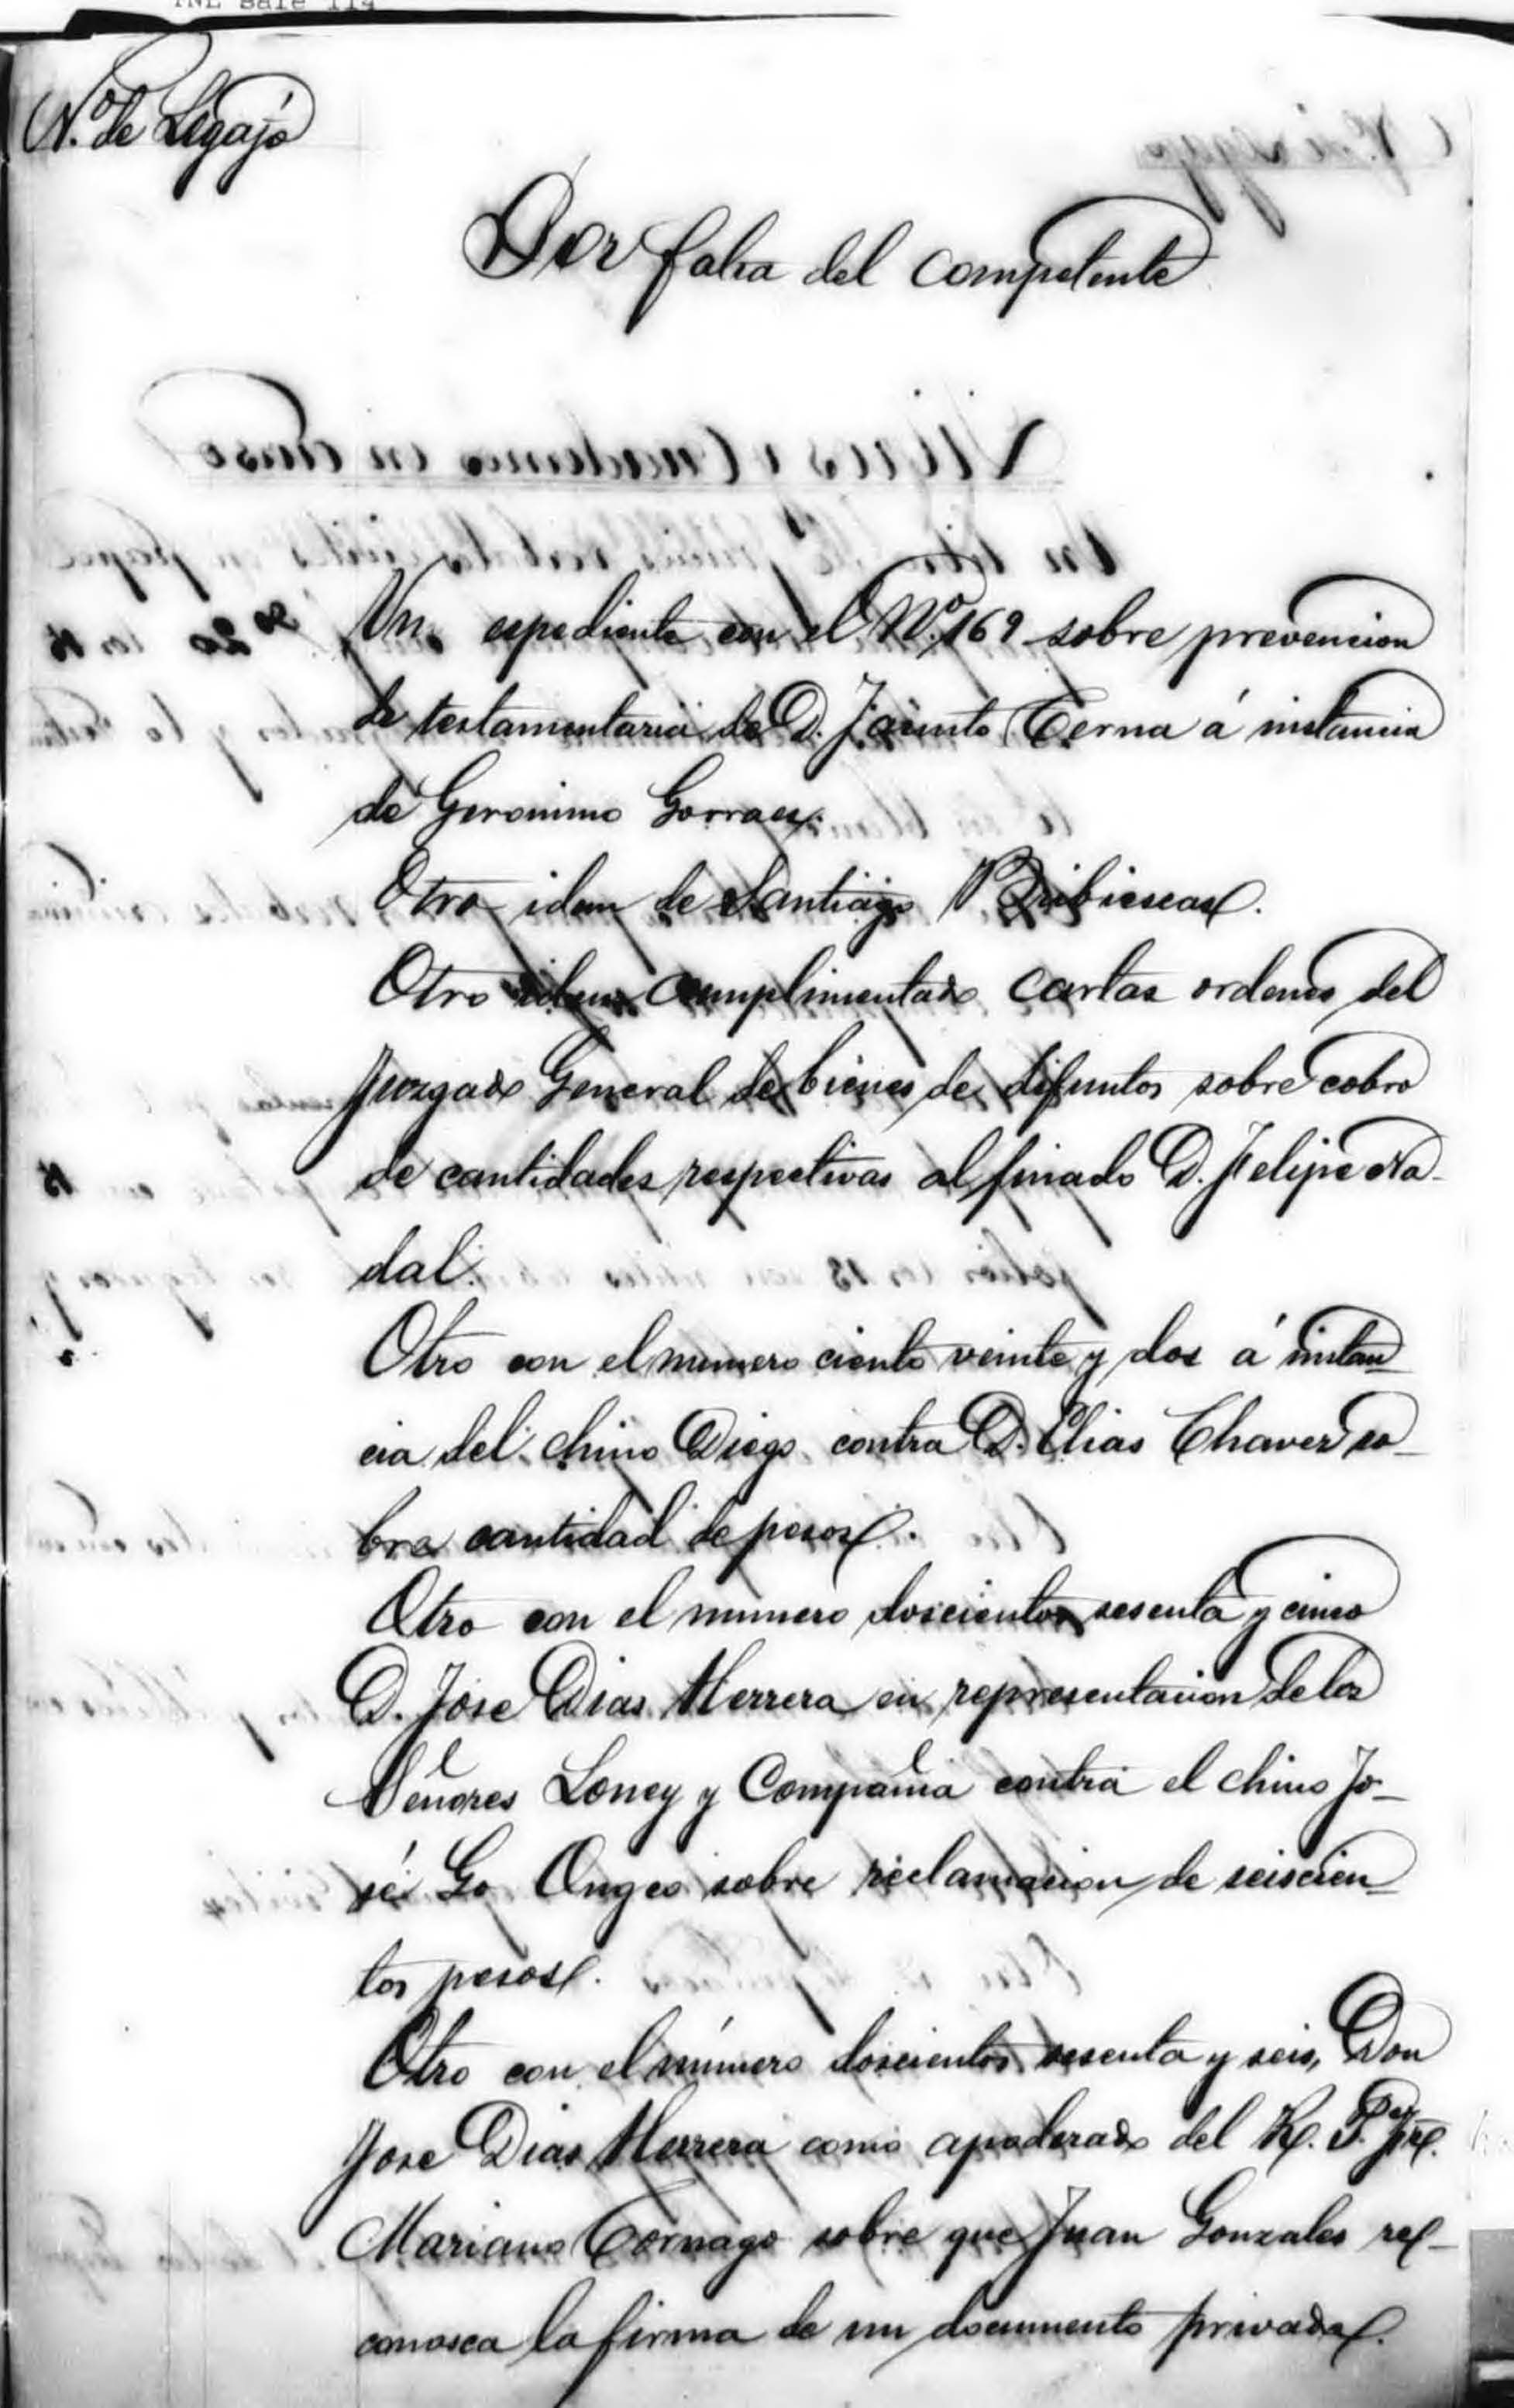 N.º de Legajo
Por falta del competente
Un espediente con el N.º 169 sobre prevencion
de testamentaria de D. Jacinto Cerna á instancia
de Geronimo Gorraes.
Otro idem de Santiago Bribiescas.
Otro idem cumplimentado cartas ordenes del
Juzgado General de bienes de difuntos sobre cobro
de cantidades respectivas al finado D. Felipe Na-
dal.
Otro con el numero ciento veinte y dos á instan-
cia del chino Diego contra D. Elias Chavez so-
bre cantidad de pesos.
Otro con el numero doscientos sesenta y cinco
D. Jose Dias Herrera en representacion de los
Señores Loney y Compañia contra el chino Jo-
sé Go Ongco sobre reclamacion de seiscien-
tos pesos.
Otro con el número doscientos sesenta y seis, Don
Jose Dias Herrera como apoderado del R. P.
Mariano Cornago sobre que Juan Gonzales re-
conosca la firma de un documento privado.